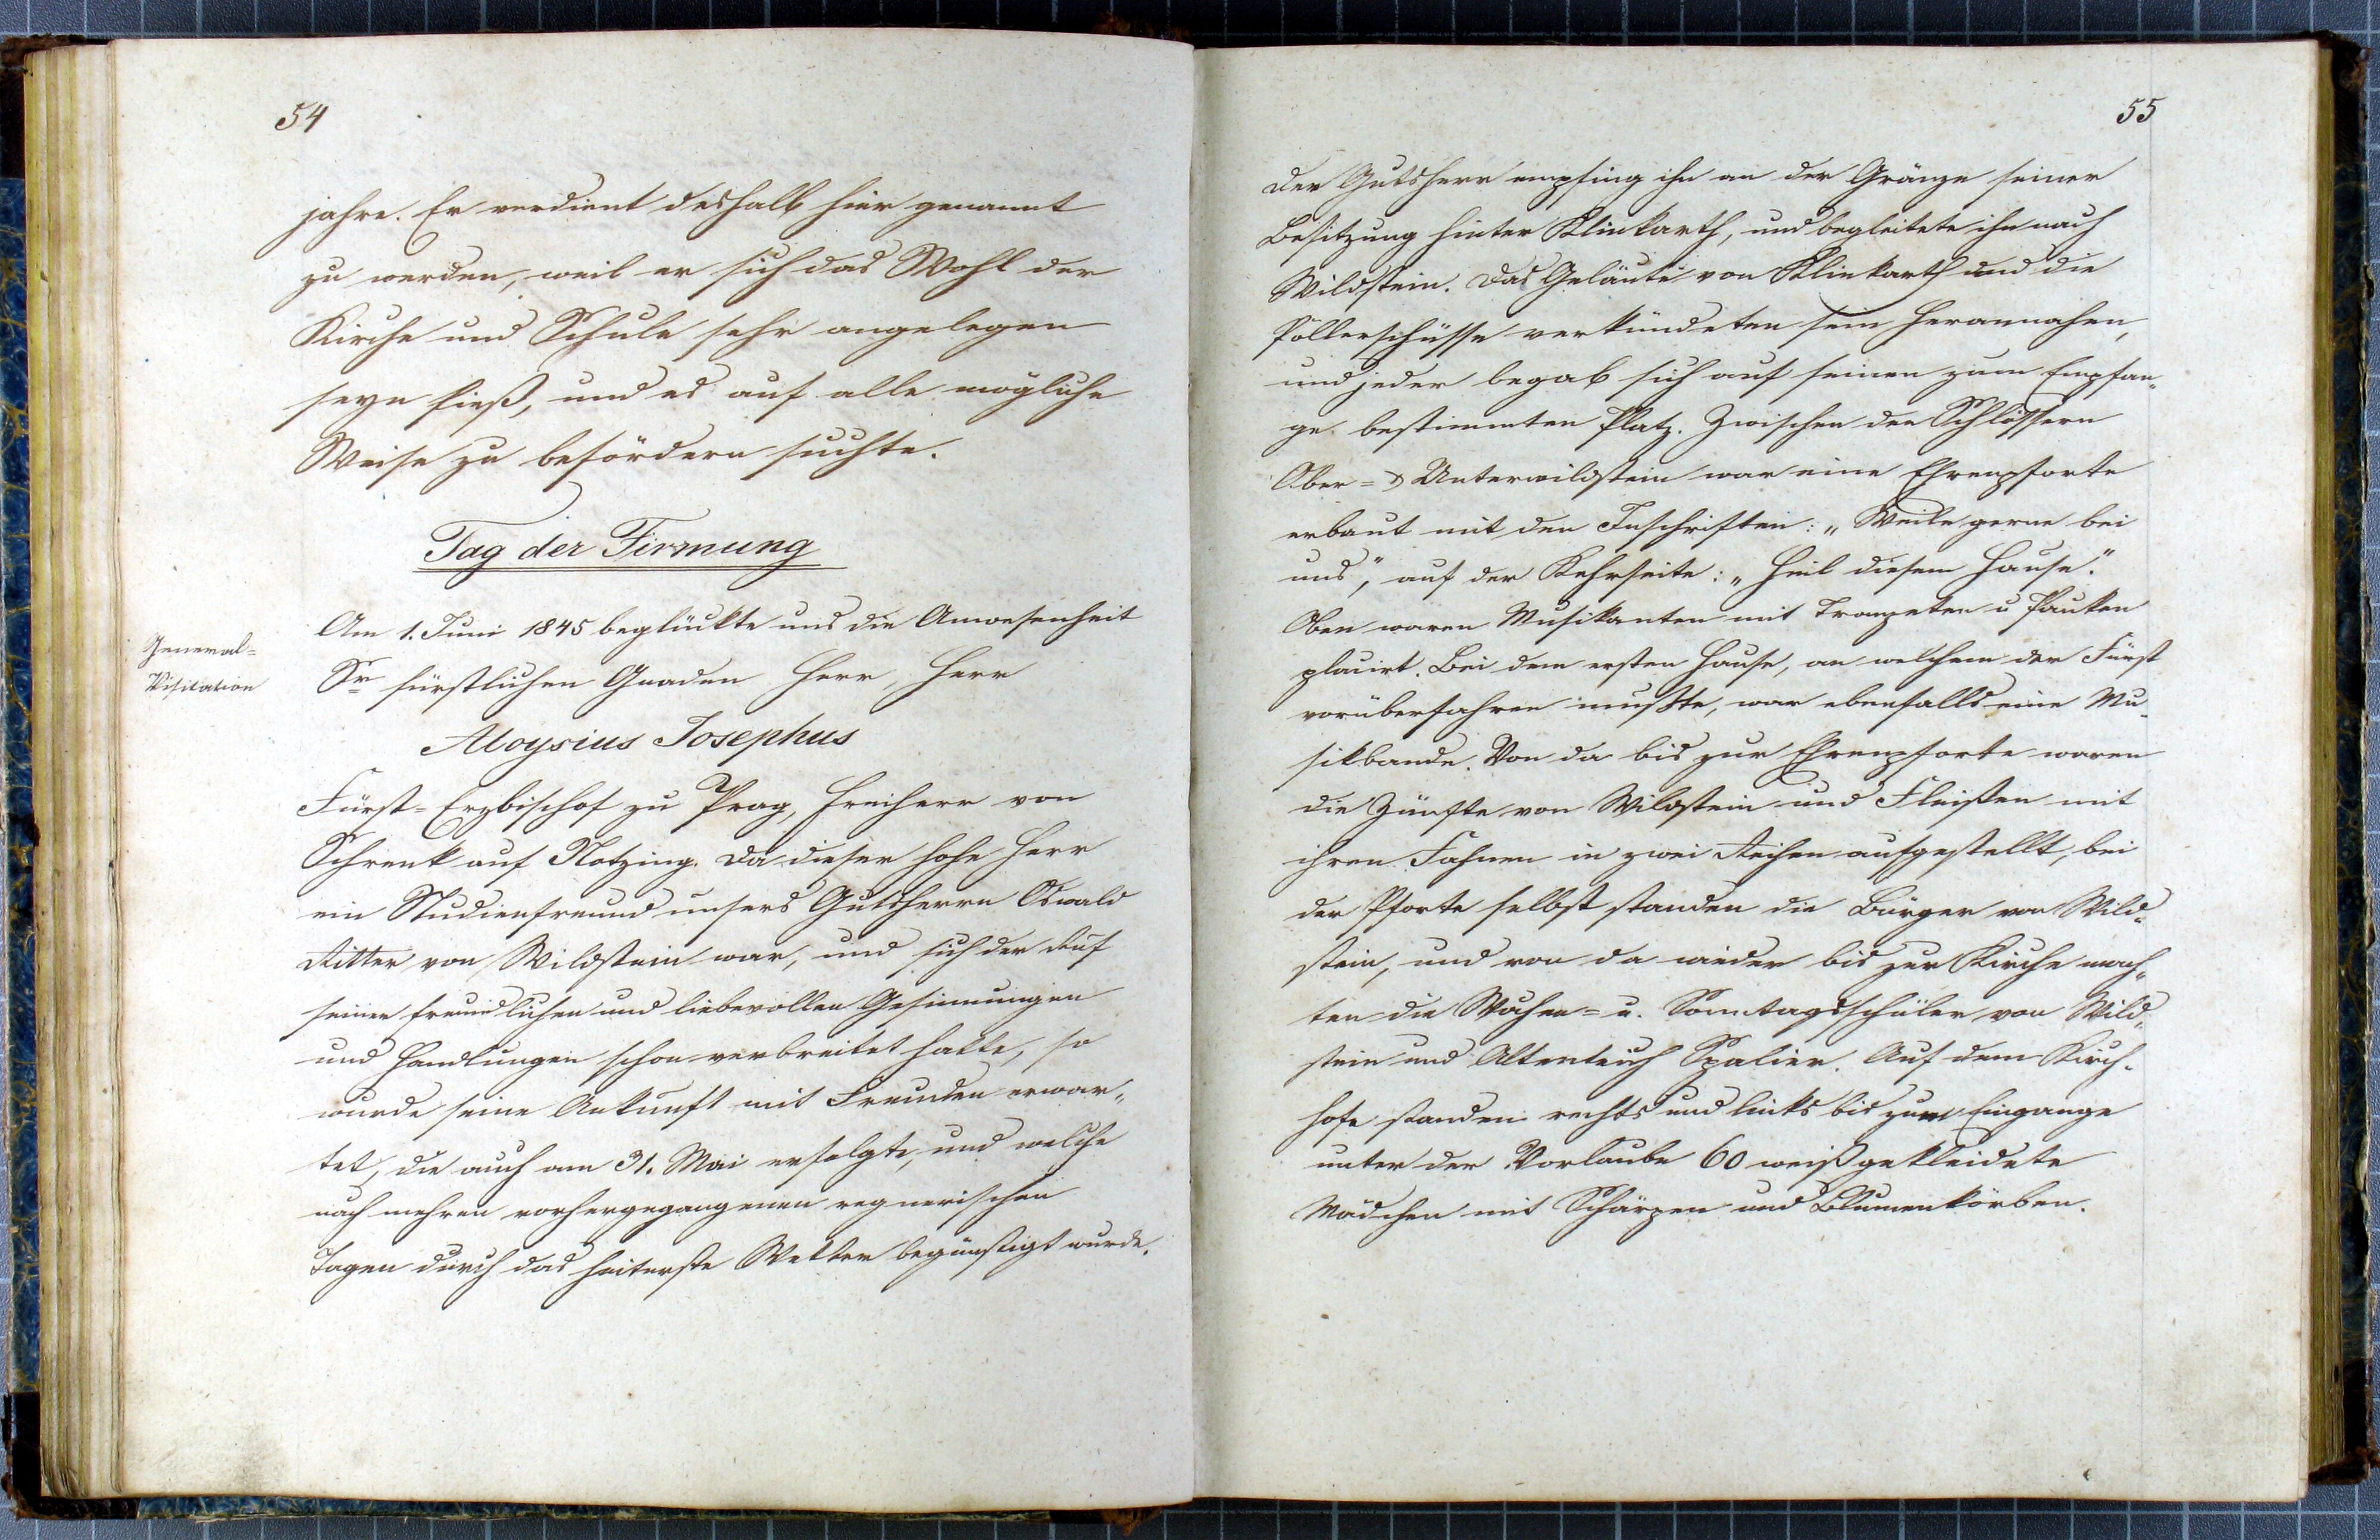 54
jahre. Er verdient deshalb hier genannt
zu werden, weil er sich das Wohl der
Kirche und Schule sehr angelegen
seyn ließ, und es auf alle mögliche
Weise zu befördern suchte.
Tag der Firmung
General=
Visitation
Am 1. Juni 1845 beglückte uns die Anwesenheit
Sr fürstlichen Gnaden Herr, Herr
Aloysius Josephus
Fürst=Erzbischof zu Prag, Freiherr von
Schrenk auf Notzing. Da dieser hohe Herr
ein Studienfreund unsers Gutsherrn Oswald
Ritter von Wildstein war, und sich der Ruf
seiner freundlichen und liebevollen Gesinnungen
und Handlungen schon verbreitet hatte, so
wurde seine Ankunft mit Freuden erwar„
tet, die auch am 31. Mai erfolgte, und welche
nach mehren vorhergegangenen regnerischen
Tagen durch das heiterste Wetter begünstigt wurde.
55
Der Gutsherr empfing ihn an der Gränze seiner
Besitzung hinter Klinkarth, und begleitete ihn nach
Wildstein. Das Geläute von Klinkarth und die
Pöllerschüsse verkündeten sein Herannahen,
und jeder begab sich auf seinen zum Empfan„
ge bestimmten Platz. Zwischen den Schlössern
Ober= & Unterwildstein war eine Ehrenpforte
erbaut mit den Inschriften: „Weile gerne bei
uns", auf der Kehrseite: „Heil diesem Hause".
Oben waren Musikanten mit Trompeten u Pauken
placirt. Bei dem ersten Hause, an welchem der Fürst
vorüberfahren mußte, war ebenfalls eine Mu„
sikbande. Von da bis zur Ehrenpforte waren
die Zünfte von Wildstein und Fleißen mit
ihren Fahnen in zwei Reihen aufgestellt, bei
der Pforte selbst standen die Bürger von Wild„
stein, und von da wieder bis zur Kirche mach„
ten die Wochen= u. Sonntagsschüler von Wild„
stein und Altenteich Spalier. Auf dem Kirch„
hofe standen rechts und links bis zum Eingange
unter der Vorlaube 60 weiß gekleidete
Mädchen mit Schärpen und Blumenkörben.